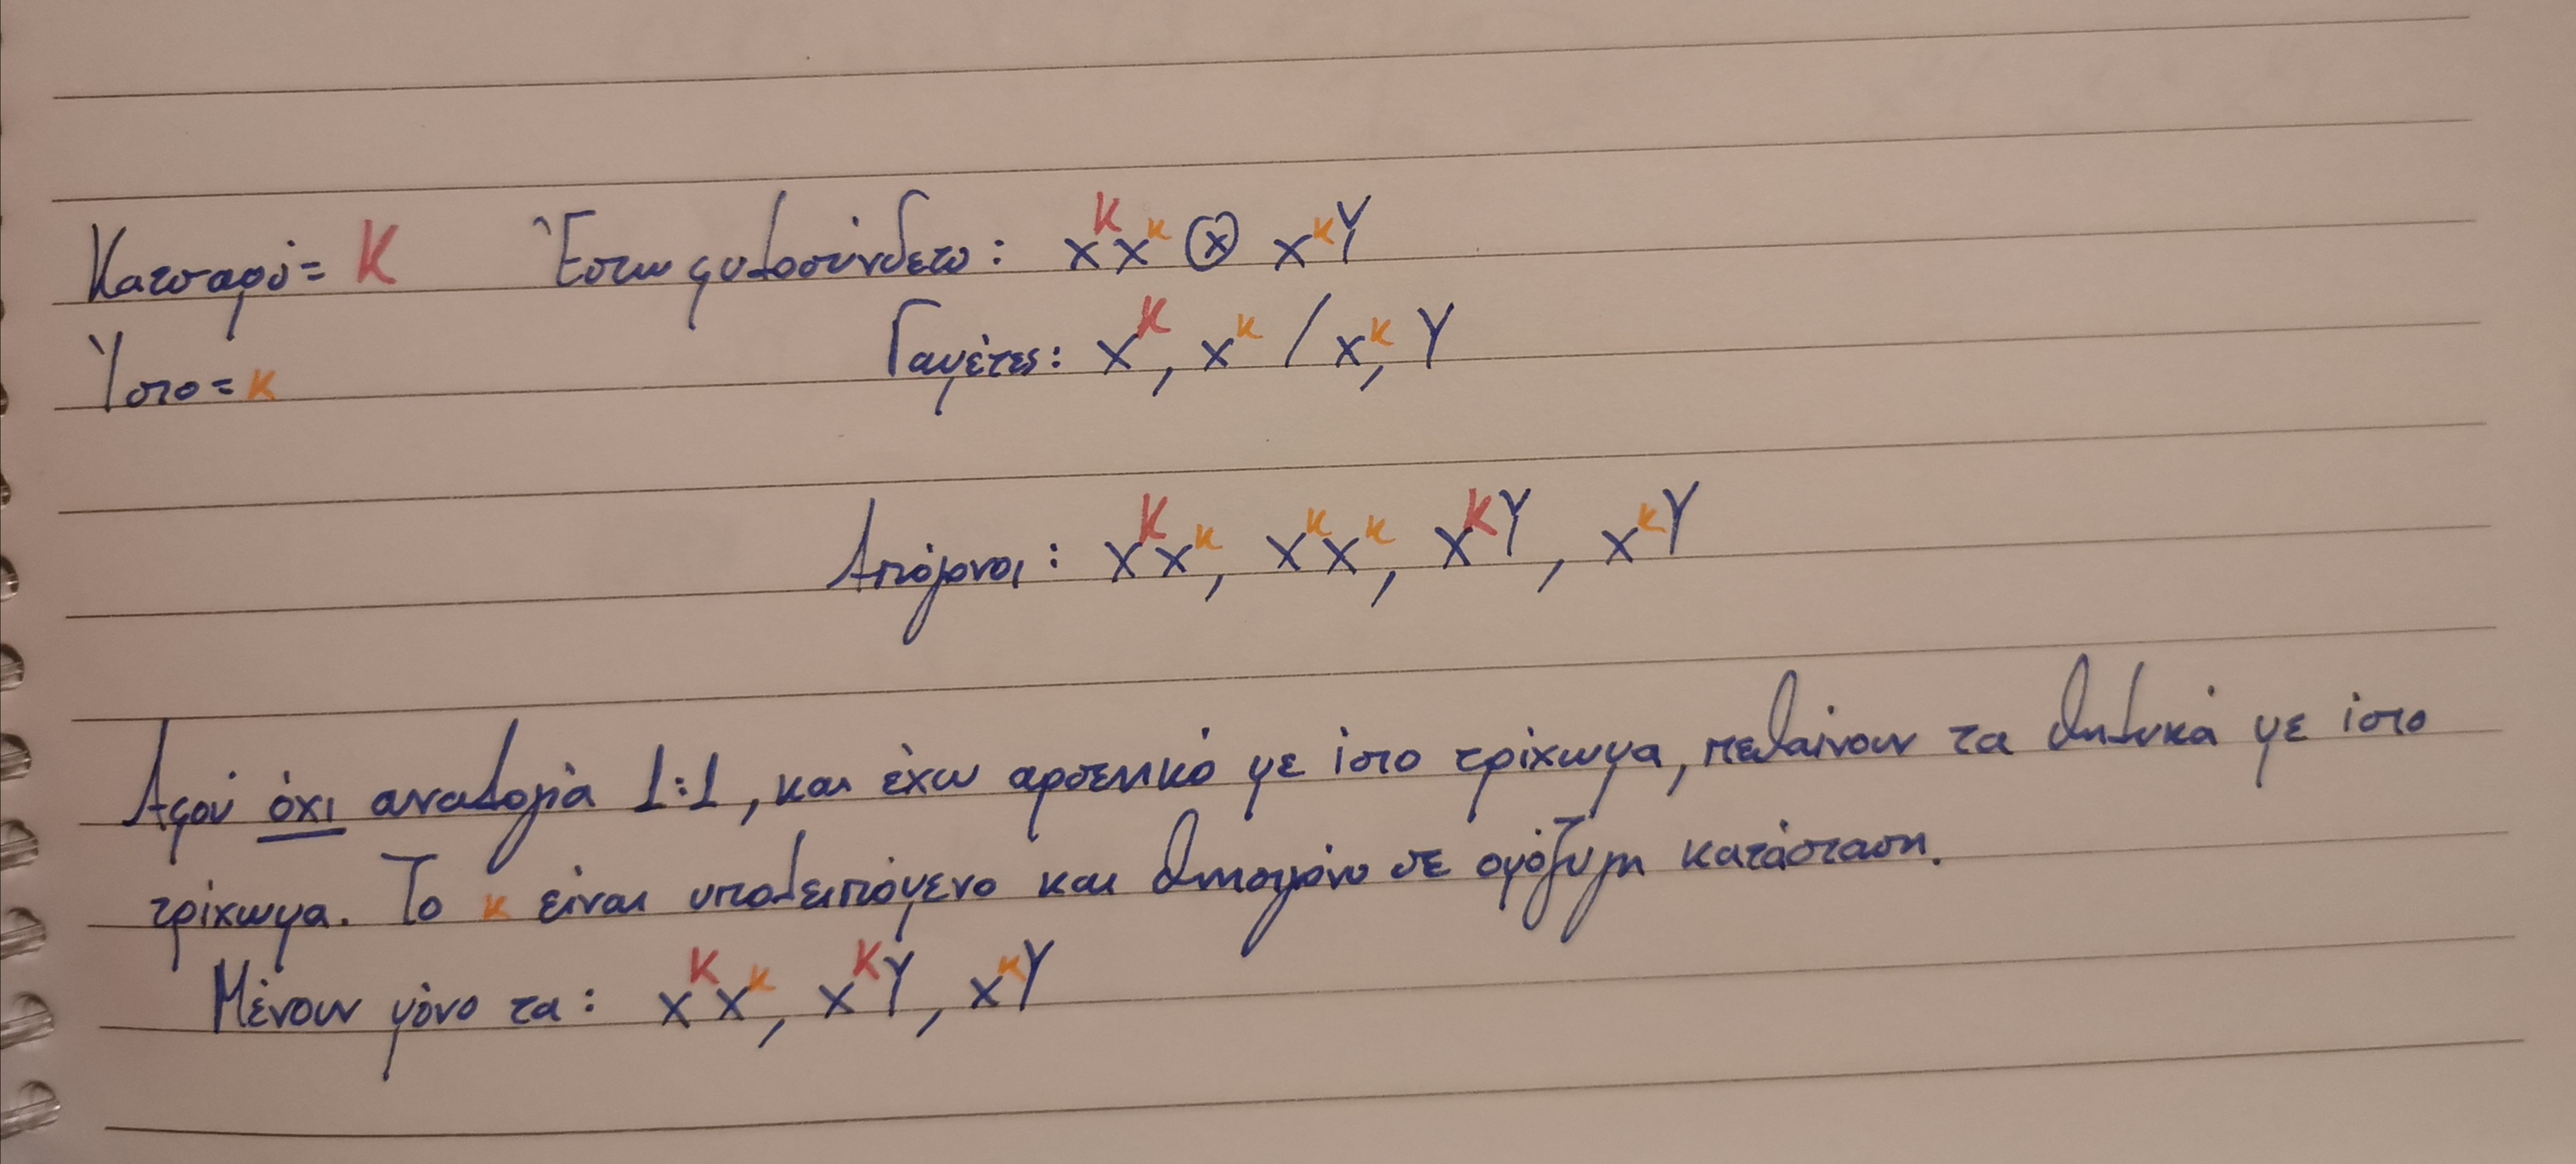 Κατσαρό = Κ Έστω φυλοσύνδετο: XᴷXᵏ ⊗ XᵏY
Ίσιο = κ Γαμέτες: Xᴷ, Xᵏ / Xᵏ, Y
Απόγονοι: XᴷXᵏ, XᵏXᵏ, XᴷY, XᵏY
Αφού όχι αναλογία 1:1, και έχω αρσενικό με ίσιο τρίχωμα, πεθαίνουν τα θηλυκά με ίσιο
τρίχωμα. Το κ είναι υπολειπόμενο και θνησιγόνο σε ομόζυγη κατάσταση.
Μένουν μόνο τα: XᴷXᵏ, XᴷY, XᵏY